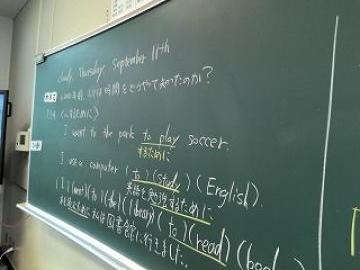 Thursday September 11th
時間をどうやって知ったのか?
I went to the park to play soccer.
するために
I use a computer (to)(study)(English).
英語を勉強するために
(I)(went)(to)(the)(library)(to)(read)
私は図書館に行きました。